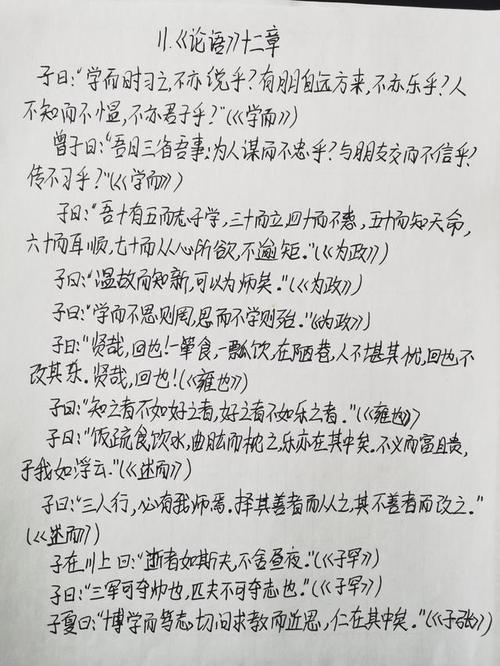 11.《论语》十二章
子曰:“学而时习之,不亦说乎?有朋自远方来,不亦乐乎?人
不知而不愠,不亦君子乎?”(《学而》)
曾子曰:“吾日三省吾事:为人谋而不忠乎?与朋友交而不信乎?
传不习乎?”(《学而》)
子曰:“吾十有五而志于学,三十而立,四十而不惑,五十而知天命,
六十而耳顺,七十而从心所欲,不逾矩。”(《为政》)
子曰:“温故而知新,可以为师矣。”(《为政》)
子曰:“学而不思则罔,思而不学则殆。”《为政》)
子曰:“贤哉,回也!一箪食,一瓢饮,在陋巷,人不堪其忧,回也不
改其乐。贤哉,回也!(《雍也》)
子曰:“知之者不如好之者,好之者不如乐之者。”(《雍也》)
子曰:“饭疏食饮水,曲肱而枕之,乐亦在其中矣。不义而富且贵,
于我如浮云。”(《述而》)
子曰:“三人行,必有我师焉。择其善者而从之,其不善者而改之。”
(《述而》)
子在川上曰:“逝者如斯夫,不舍昼夜。”(《子罕》)
子曰:“三军可夺帅也,匹夫不可夺志也。”(《子罕》)
子夏曰:“博学而笃志,切问求教而近思,仁在其中矣。”(《子张》)